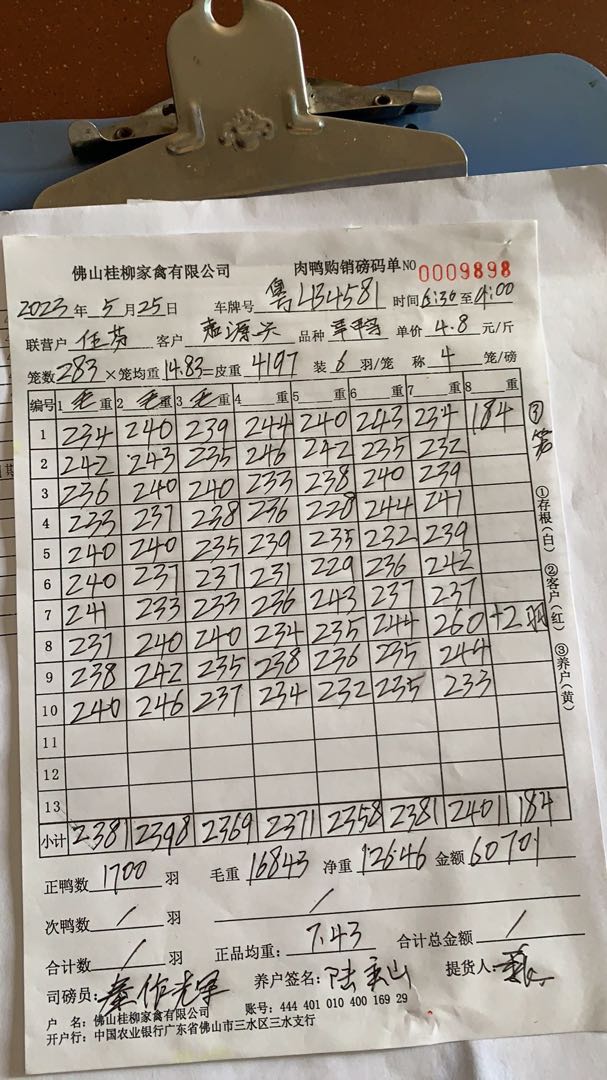 佛山桂柳家禽有限公司 肉鸭购销磅码单 NO 0009898
2023年 5月25日 车牌号 粤434581 时间 6:30至9:00
联营户 伍芬 客户 源兴 品种 单价 4.8 元/斤
笼数283×笼均重14.83=皮重 4197 装 6 羽/笼 称 4 笼/磅
编号 1毛重 2毛重 3毛重 4 重 5 重 6 重 7 重 8 重
1 234 240 239 244 240 243 234 184 ③笼
2 242 243 235 246 242 235 232
3 236 240 240 233 238 240 239
4 233 237 238 236 228 244 241
5 240 240 235 239 235 232 239
6 240 237 237 231 229 236 242
7 241 233 233 236 243 237 237
8 237 240 240 234 235 244 260 +2羽
9 238 242 235 238 236 235 244
10 240 246 237 234 232 235 233
11
12
13
小计 2381 2398 2369 2371 2358 2381 2401 184
①存根(白) ②客户(红) ③养户(黄)
正鸭数 1700 羽 毛重 16843 净重 12646 金额 60701
次鸭数 / 羽 /
合计数 / 羽 正品均重: 7.43 合计总金额 /
司磅员: 秦作光军 养户签名: 陆英山 提货人:
户 名: 佛山桂柳家禽有限公司 账号: 444 401 010 400 169 29
开户行: 中国农业银行广东省佛山市三水区三水支行